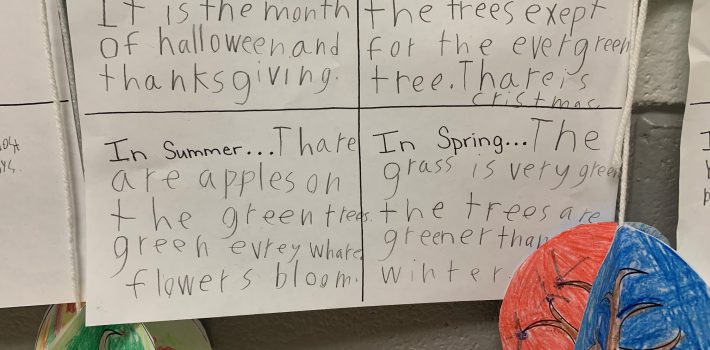 It is the month
of halloween and
thanksgiving.
the trees exept
for the evergreen
tree. Thare is
cristmas.
In Summer... Thare
are apples on
the green trees.
green evrey whare
flowers bloom.
In Spring... The
grass is very green
the trees are
greener than
winter.